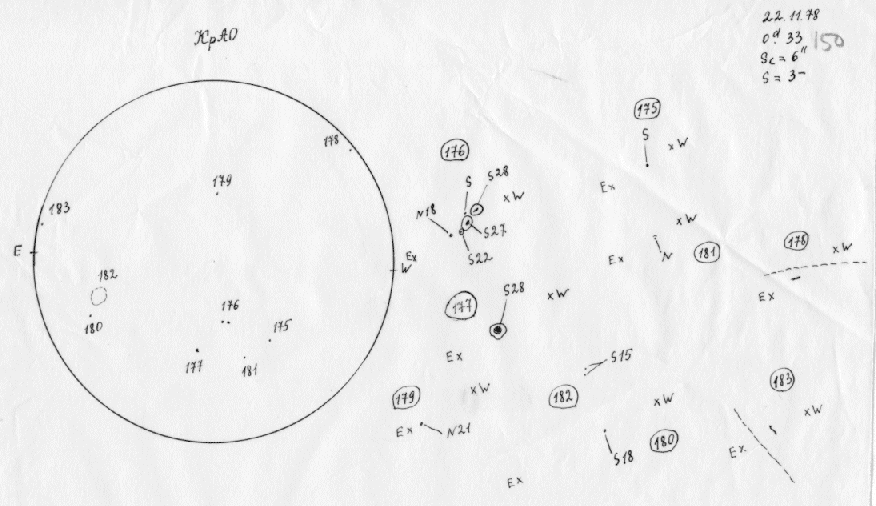 КрАО
22.11.78
0ᵈ.33 150
Sc = 6"
S = 3-
178
179
183
E
W
182
180
176
175
177
181
176
S
S28
x W
N18
S27
S22
Ex
175
S
x W
Ex
x W
Ex
N
181
178
x W
Ex
177
S28
x W
Ex
179
x W
Ex
N21
182
S15
x W
S18
180
Ex
183
x W
Ex